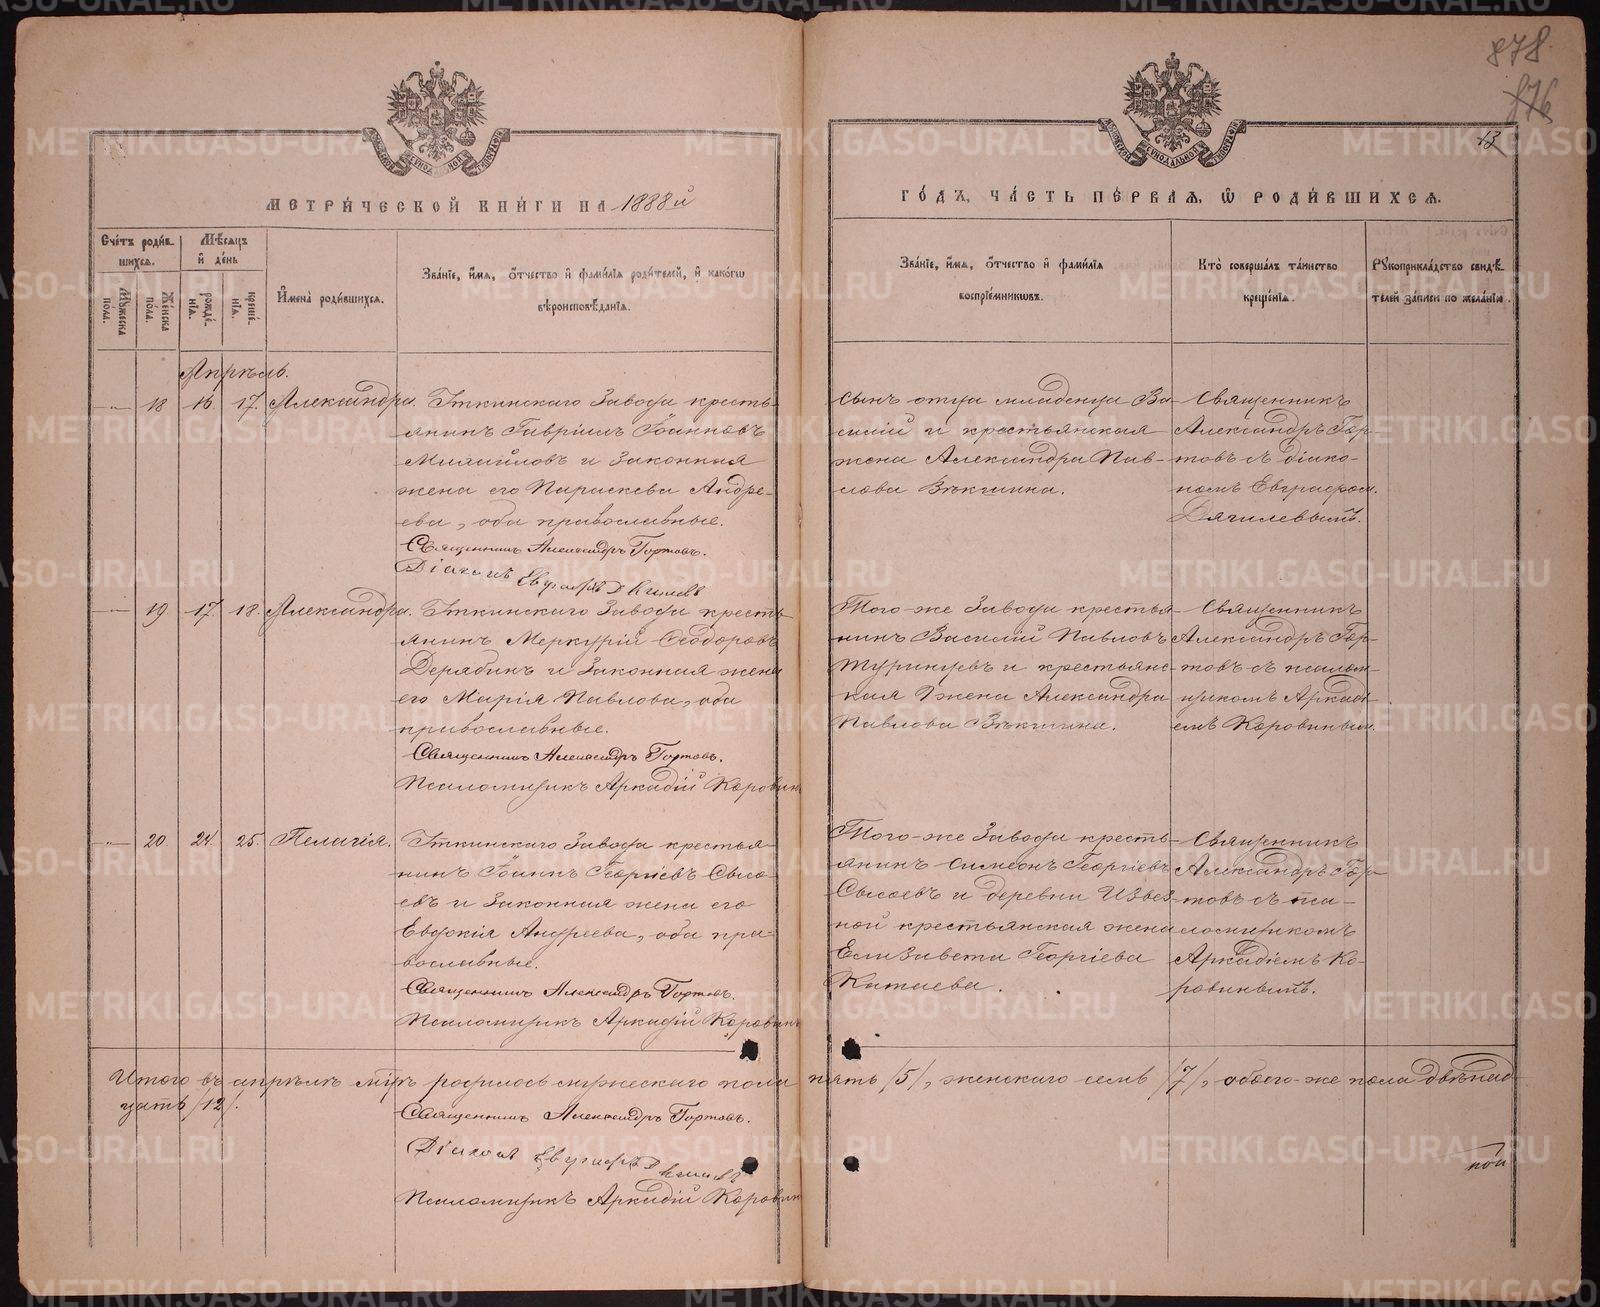 878.
876
13
МОСКОВСКОЙ СѴНОДАЛЬНОЙ ТИПОГРАФІИ
МОСКОВСКОЙ СѴНОДАЛЬНОЙ ТИПОГРАФІИ
МЕТРИ́ЧЕСКОЙ КНИ́ГИ НА 1888й
ГО́ДЪ, ЧА́СТЬ ПЕ́РВАѦ, Ѡ РОДИ́ВШИХСѦ.
Сче́тъ роди́в-
шихсѧ.
Мѣ́сѧцъ
и҆ де́нь
Мꙋжеска
пола.
Же́нска
по́ла.
рожде́-
нїѧ.
креще́-
нїѧ.
И҆мена̀ роди́вшихсѧ.
Зва́нїе, и҆́мѧ, ѻ҆́тчество и҆ фами́лїѧ роди́телей, и҆ како́гѡ
вѣроисповѣ́данїѧ.
Зва́нїе, и҆́мѧ, ѻ҆́тчество и҆ фами́лїѧ
воспрїе́мникѡвъ.
Кто̀ соверша́лъ та́инство
креще́нїѧ.
Рꙋкоприкла́дство свидѣ́-
телей за́писи по жела́нїю.
Апрѣль.
18 16 17. Александра. Уткинскаго Завода кресть-
янинъ Гавріилъ Іоанновъ
Михайловъ и законная
жена его Параскева Андре-
ева, оба православные.
Священникъ Александръ Гортовъ.
Діаконъ Евграфъ Дягилевъ
Сынъ отца младенца Ва-
силій и крестьянская
жена Александра Пав-
лова Вѣкшина.
Священникъ
Александръ Гор-
товъ съ діако-
номъ Евграфом.
Дягилевымъ.
19 17. 18. Александра. Уткинскаго Завода кресть-
янинъ Меркурій Ѳеодоровъ
Дерябинъ и законная жена
его Марія Павлова, оба
православные.
Священникъ Александръ Гортовъ.
Псаломщикъ Аркадій Коровин
Того-же Завода крестья-
нинъ Василій Павловъ
Турынцевъ и крестьянс-
кая жена Александра
Павлова Вѣкшина.
Священникъ
Александръ Гор-
товъ съ псалом-
щикомъ Аркаді-
емъ Коровиным.
20 24. 25. Пелагія. Уткинскаго Завода крестья-
нинъ Іоаннъ Георгіевъ Сысо-
евъ и законная жена его
Евдокія Андреева, оба пра-
вославные.
Священникъ Александръ Гортовъ.
Псаломщикъ Аркадій Коровинъ
Того-же Завода кресть-
янинъ Симеонъ Георгіевъ
Сысоевъ и деревни Извез-
ной крестьянская жена
Елизавета Георгіева
Катаева.
Священникъ
Александръ Гор-
товъ съ пса-
ломщикомъ
Аркадіемъ Ко-
ровинымъ.
Итого въ апрѣлѣ м-цѣ родилось мужескаго пола пять /5/, женскаго семь /7/, обоего-же пола двѣнад-
цать /12/.
Священникъ Александръ Гортовъ.
Діаконъ Евграфъ Дягилевъ
Псаломщикъ Аркадій Коровин
ной
METRIKI.GASO-URAL.RU